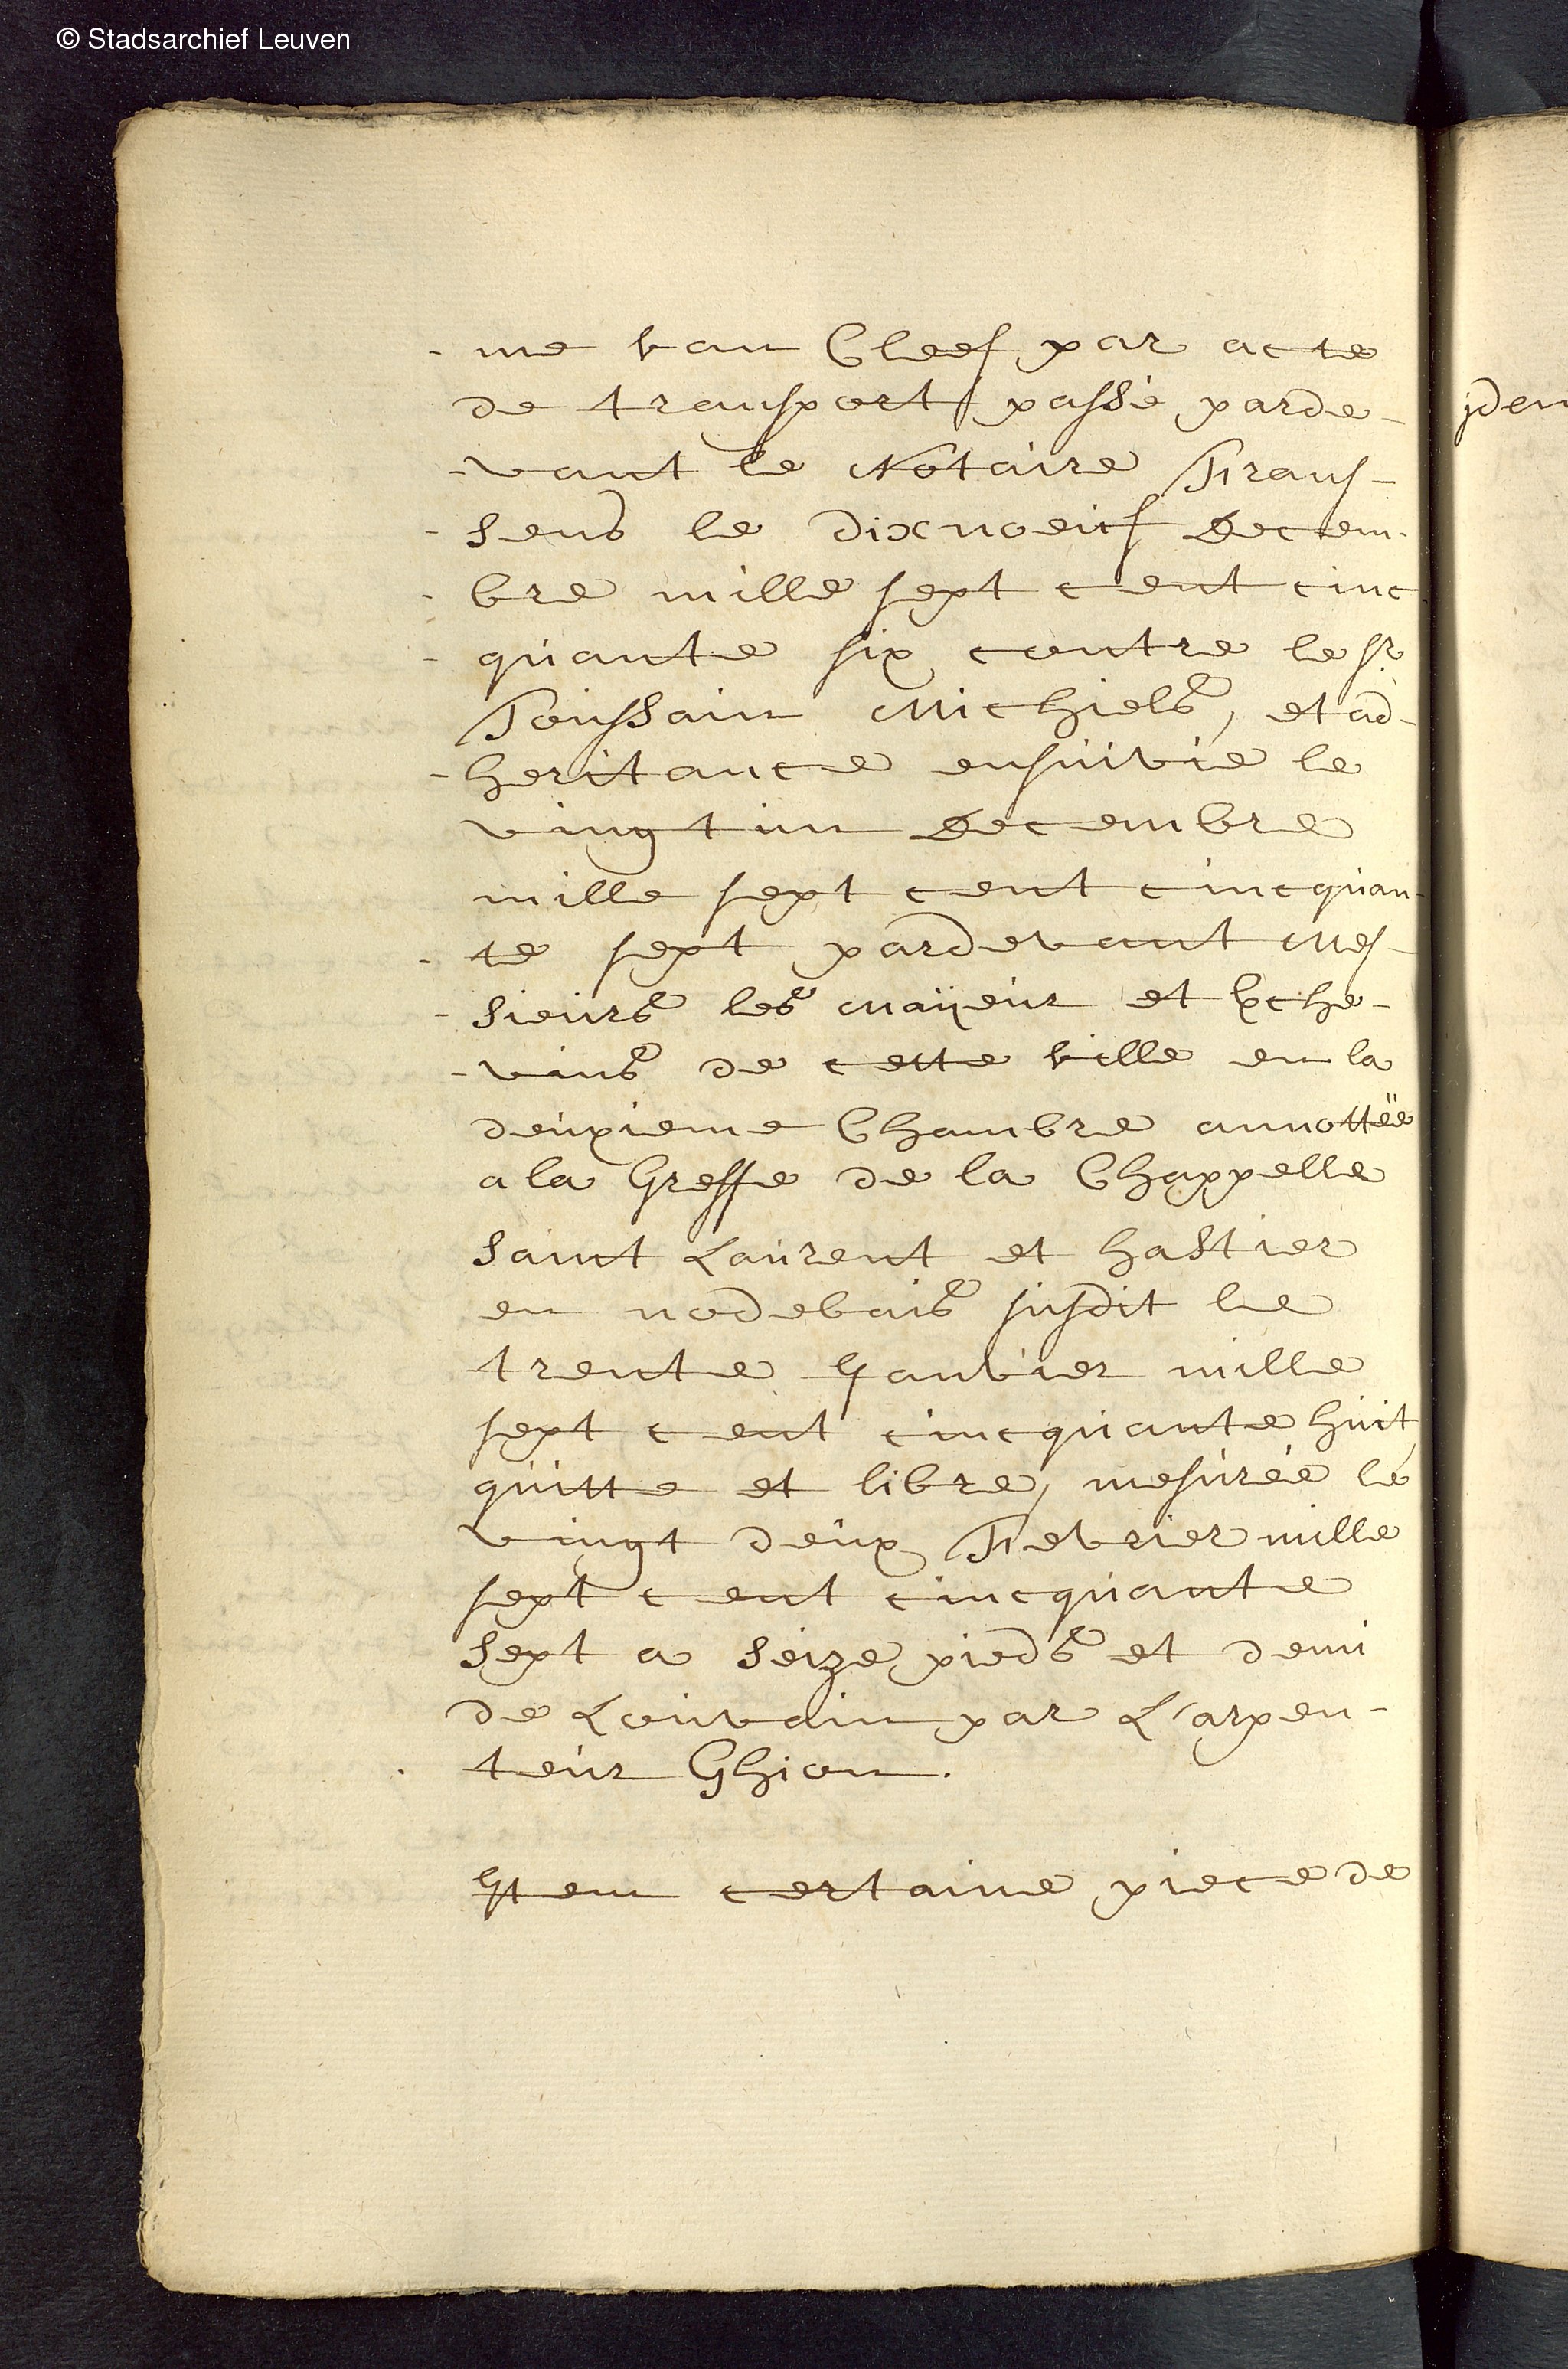 © Stadsarchief Leuven
- me van Cleef par acte
de transport passé parde-
- vant le Notaire Frans-
- sens le dixnoeuf Decem-
- bre mille sept cent cinc
- quante six contre le Sr
Toussain Michiels, et ad-
- heritance ensuivie le
vingt un Decembre
mille sept cent cincquan-
- te sept pardevant Mes-
- sieurs les Maÿeur et Eche-
- vins de cette ville en la
deuxieme Chambre annottée
a la Greffe de la Chappelle
saint Laurent et hastier
en nodebais susdit le
trente Janvier mille
sept cent cincquante huit
quitte et libre, mesurée le
vingt deux Fevrier mille
sept cent cincquante
sept a seize pieds et demi
de Louvain par L'arpen-
- teur Ghion.
Item certaine piece de
jdem